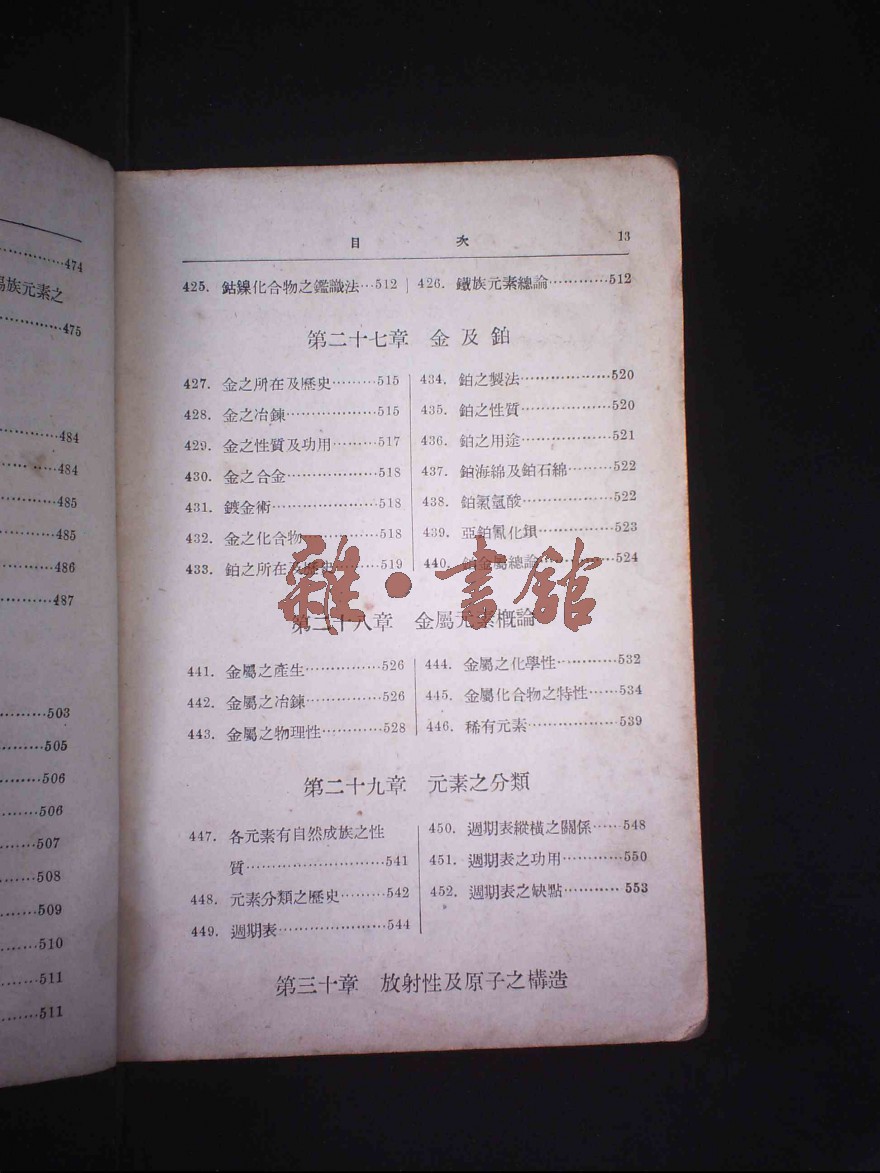 474
族元素之
475
484
484
485
485
486
487
503
505
506
506
507
508
509
510
511
511
目 次 13
425. 鈷鎳化合物之鑑識法…512
426. 鐵族元素總論…………512
第二十七章 金及鉑
427. 金之所在及歷史………515
428. 金之冶鍊………………515
429. 金之性質及功用………517
430. 金之合金………………518
431. 鍍金術…………………518
432. 金之化合物……………518
433. 鉑之所在及歷史………519
434. 鉑之製法………………520
435. 鉑之性質………………520
436. 鉑之用途………………521
437. 鉑海綿及鉑石綿………522
438. 鉑氯氫酸………………522
439. 亞鉑氰化鋇……………523
440. 鉑金屬總論……………524
雜·書館
第二十八章 金屬元素概論
441. 金屬之產生……………526
442. 金屬之冶鍊……………526
443. 金屬之物理性…………528
444. 金屬之化學性…………532
445. 金屬化合物之特性……534
446. 稀有元素………………539
第二十九章 元素之分類
447. 各元素有自然成族之性
質………………………541
448. 元素分類之歷史………542
449. 週期表…………………544
450. 週期表縱橫之關係……548
451. 週期表之功用…………550
452. 週期表之缺點…………553
第三十章 放射性及原子之構造